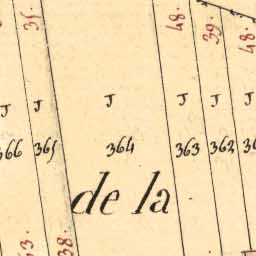 35. 48. 39. 48.
J J J J J J
366 365 364 363 362
de la
38.